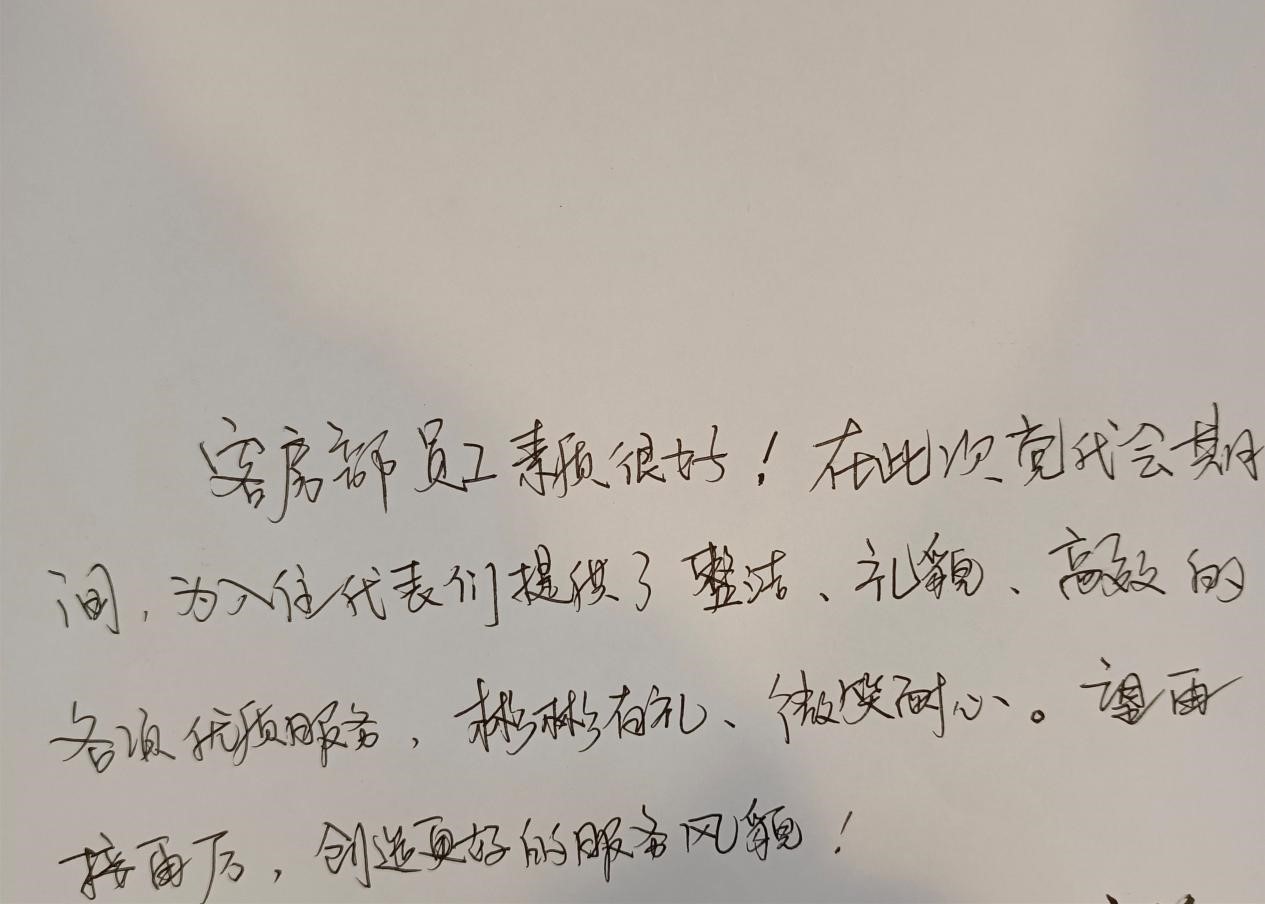 客房部员工素质很好！在此次党代会期
间，为入住代表们提供了整洁、礼貌、高效的
各项优质服务，彬彬有礼、微笑耐心。望再
接再厉，创造更好的服务风貌！